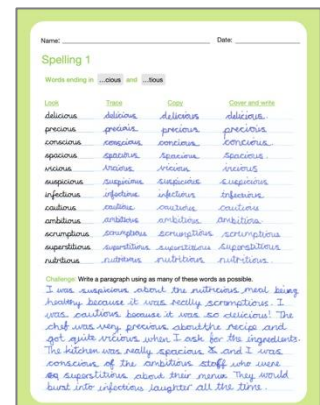 Name: Date:
Spelling 1
Words ending in ...cious and ...tious
Look Trace Copy Cover and write
delicious delicious delicious delicious.
precious precious precious precious
conscious conscious concious concious.
spacious spacious spacious spacious.
vicious vicious vicious vicious
suspicious suspicious suspicious suspicious
infectious infectious infectious infectious.
cautious cautious cautious cautious
ambitious ambitious ambitious ambitious.
scrumptious scrumptious scrumptious scrumptious
superstitious superstitious superstitious superstitious
nutritious nutritious nutritious nutritious.
Challenge Write a paragraph using as many of these words as possible.
I was suspicious about the nutricious meal being
healthy because it was really scrumptious. I
was cautious because it was so delicious! The
chef was very precious about the recipe and
got quite vicious when I ask for the ingredients.
The kitchen was really spacious and I was
conscious of the ambitious staff who were
superstitious about their menu. They would
burst into infectious laughter all the time.